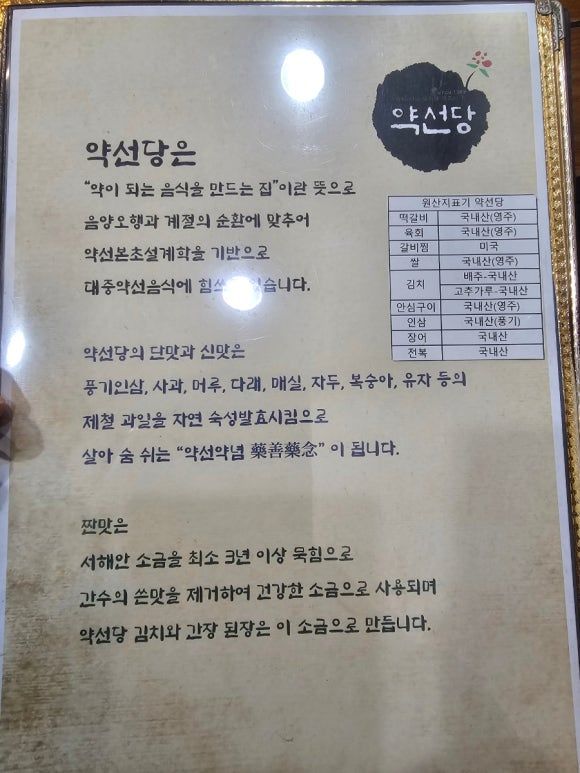 약선당
약선당은
"약이 되는 음식을 만드는 집"이란 뜻으로
음양오행과 계절의 순환에 맞추어
약선본초설계학을 기반으로
대중약선음식에 힘쓰 있습니다.
원산지표기 약선당
떡갈비 국내산(영주)
육회 국내산(영주)
갈비찜 미국
쌀 국내산(영주)
김치 배추-국내산
고추가루-국내산
안심구이 국내산(영주)
인삼 국내산(풍기)
장어 국내산
전복 국내산
약선당의 단맛과 신맛은
풍기인삼, 사과, 머루, 다래, 매실, 자두, 복숭아, 유자 등의
제철 과일을 자연 숙성발효시킴으로
살아 숨 쉬는 "약선약념 藥善藥念" 이 됩니다.
짠맛은
서해안 소금을 최소 3년 이상 묵힘으로
간수의 쓴맛을 제거하여 건강한 소금으로 사용되며
약선당 김치와 간장 된장은 이 소금으로 만듭니다.